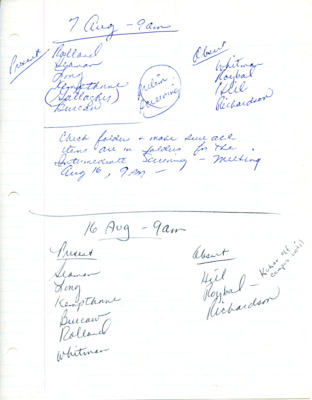 7 Aug - 9am
Present
Rolland
Seaman
Long
Kempthorne
(Gallocky)
Burcaw
Prelim
Screening
Absent
Whitman
Roybal
Hill
Richardson
Check folders & make sure all
items are in folders for the
Intermediate Screening - Meeting
Aug 16, 9 AM -
16 Aug - 9am
Present
Seaman
Long
Kempthorne
Burcaw
Rolland
Whitman
Absent
Hill
Roybal -
Richardson
campus visits